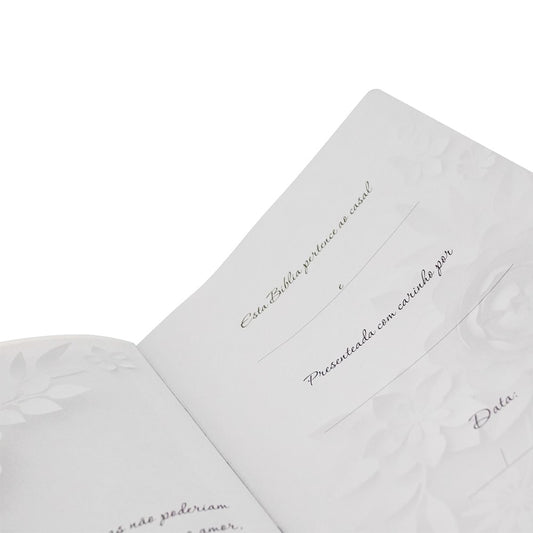 não poderiam
amor,
Esta Bíblia pertence ao casal
e
Presenteada com carinho por
Data: